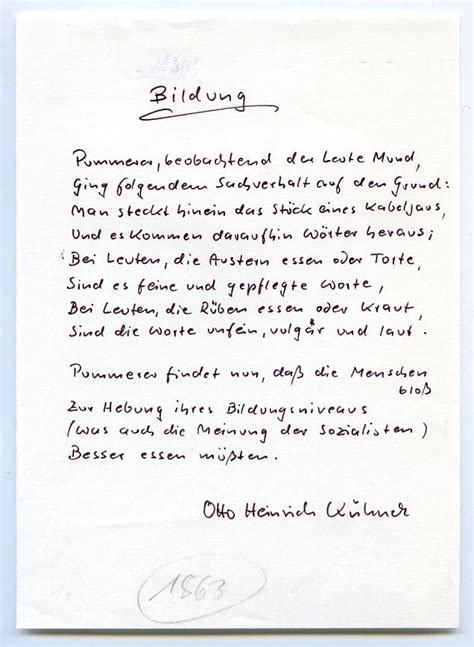 Bildung
Pummerer, beobachtend der Leute Mund,
Ging folgendem Sachverhalt auf den Grund:
Man steckt hinein das Stück eines Kabeljaus,
Und es kommen daraufhin Wörter heraus;
Bei Leuten, die Austern essen oder Torte,
Sind es feine und gepflegte Worte,
Bei Leuten, die Rüben essen oder Kraut,
Sind die Worte unfein, vulgär und laut.
Pummerer findet nun, daß die Menschen
bloß
Zur Hebung ihres Bildungsniveaus
(Was auch die Meinung der Sozialisten)
Besser essen müßten.
Otto Heinrich Kühner
1863